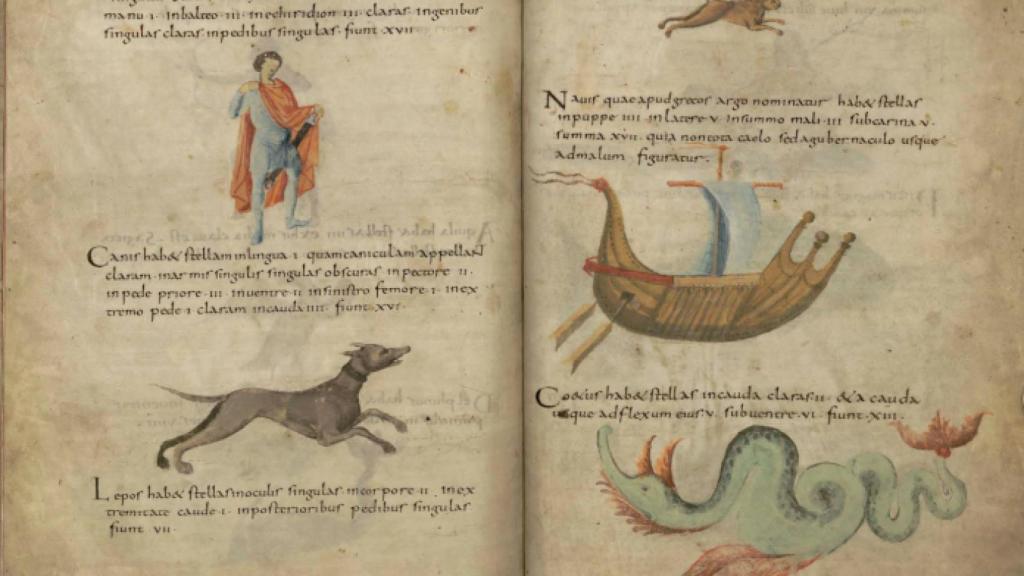 manu · I · inbalteo · III · inechiridion · III · claras · ingenibus
singulas claras inpedibus singulas · fiunt · XVII ·
Canis hab& stellam inlingua · I · quam caniculam appellant
claram · inarmis singulis singulas obscuras · inpectore · II ·
inpede priore · III · inuentre · II · insinistro femore · I · inex
tremo pede · I · claram incauda IIII · fiunt · XVI ·
Lepos hab& stellas inoculis singulas · incorpore · II · inex
tremitate caude · I · inposterioribus pedibus singulas
fiunt · VII ·
Nauis quae apud grecos argo nominatur hab& stellas
inpuppe · IIII · inlatere · V · insummo mali · III · subcarina · V ·
summa XVII · quia non tota caelo sed a gubernaculo usque
ad malum figuratur ·
hab& stellas incauda claras · II · & a cauda
usque ad flexum eius · V · subuentre · VI · fiunt · XIII ·